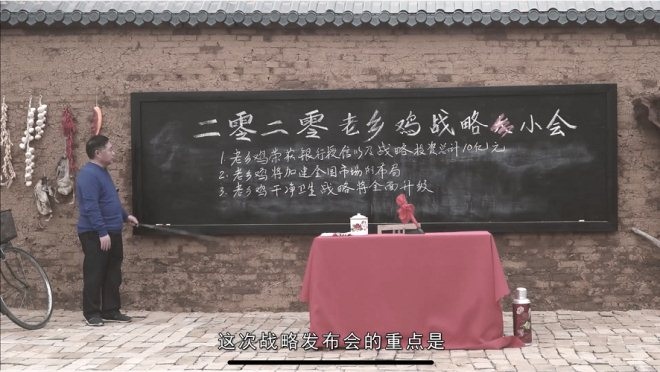 二零二零老乡鸡战略 小会
1.老乡鸡荣获银行授信以及战略投资总计10亿元
2.老乡鸡将加速全国市场的布局
3.老乡鸡干净卫生战略将全面升级
这次战略发布会的重点是